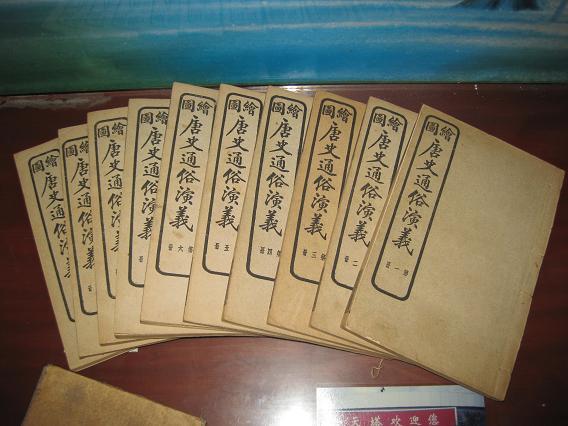 繪圖
唐史通俗演義
第一冊
繪圖
唐史通俗演義
第二冊
繪圖
唐史通俗演義
第三冊
繪圖
唐史通俗演義
第四冊
繪圖
唐史通俗演義
第五冊
繪圖
唐史通俗演義
第六冊
繪圖
唐史通俗演義
冊
繪圖
唐史通俗演義
冊
繪圖
唐史通俗演義
冊
繪圖
唐史通俗演義
天塔欢迎您